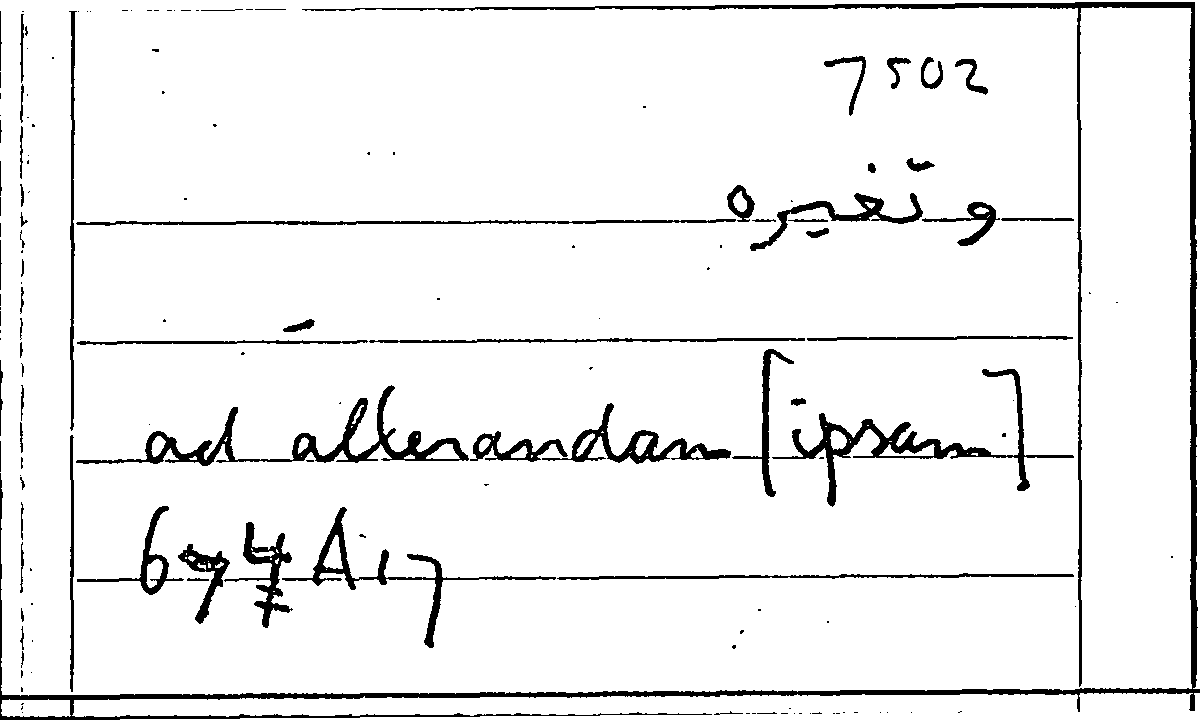 7502
وتغيره
ad alterandam [ipsam]
674 A 17